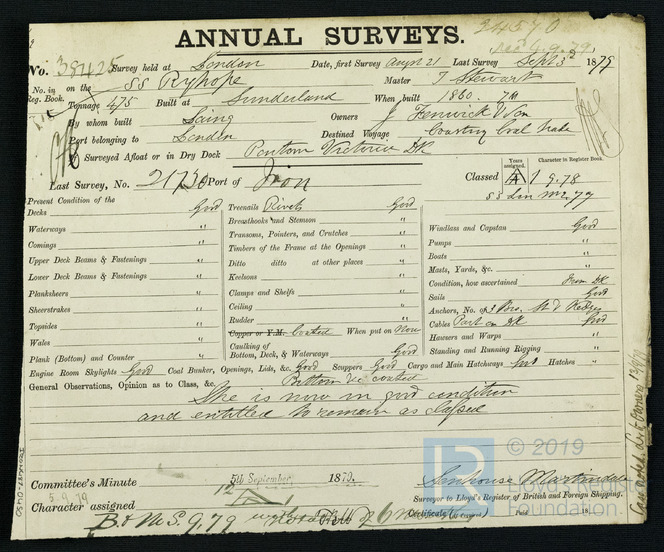 34570
Rec 4.9.79
ANNUAL SURVEYS.
No. 38425 Survey held at London Date, first Survey Augst 21 Last Survey Septr 3d 1879
No. in Reg. Book. on the SS Ryhope Master T Stewart
Tonnage 475 Built at Sunderland When built 1860. 7M
By whom built Laing Owners J Fenwick & Son
Port belonging to London Destined Voyage Coasting Coal trade
If Surveyed Afloat or in Dry Dock Pontoon Victoria Dk
Last Survey, No. 21730 Port of Iron Classed Years assigned. A 1 Character in Register Book. 9.78
SS Lon 77
Present Condition of the Good
Decks "
Waterways "
Comings "
Upper Deck Beams & Fastenings "
Lower Deck Beams & Fastenings "
Planksheers "
Sheerstrakes "
Topsides "
Wales "
Plank (Bottom) and Counter "
Treenails Rivets Good
Breasthooks and Stemson "
Transoms, Pointers, and Crutches "
Timbers of the Frame at the Openings "
Ditto ditto at other places "
Keelsons "
Clamps and Shelfs "
Ceiling "
Rudder "
Copper or Y.M. Coated When put on Now
Caulking of Bottom, Deck, & Waterways Good
Windlass and Capstan Good
Pumps "
Boats "
Masts, Yards, &c. "
Condition, how ascertained From Dk
Sails Good
Anchors, No. of 3 Bow,
Cables Part on Dk Good
Hawsers and Warps "
Standing and Running Rigging "
Engine Room Skylights Good Coal Bunker, Openings, Lids, &c. Good Scuppers Good Cargo and Main Hatchways Good Hatches "
General Observations, Opinion as to Class, &c. Bottom &c coated
She is now in good condition
and entitled to remain as classed
Committee's Minute 5th September 1879.
5.9.79
Character assigned A 1
B & MS. 9,79
Senhouse Martindale
Surveyor to Lloyd's Register of British and Foreign Shipping.
Certificate (if required) Paid 18
© 2019
Lloyd's Register
Foundation